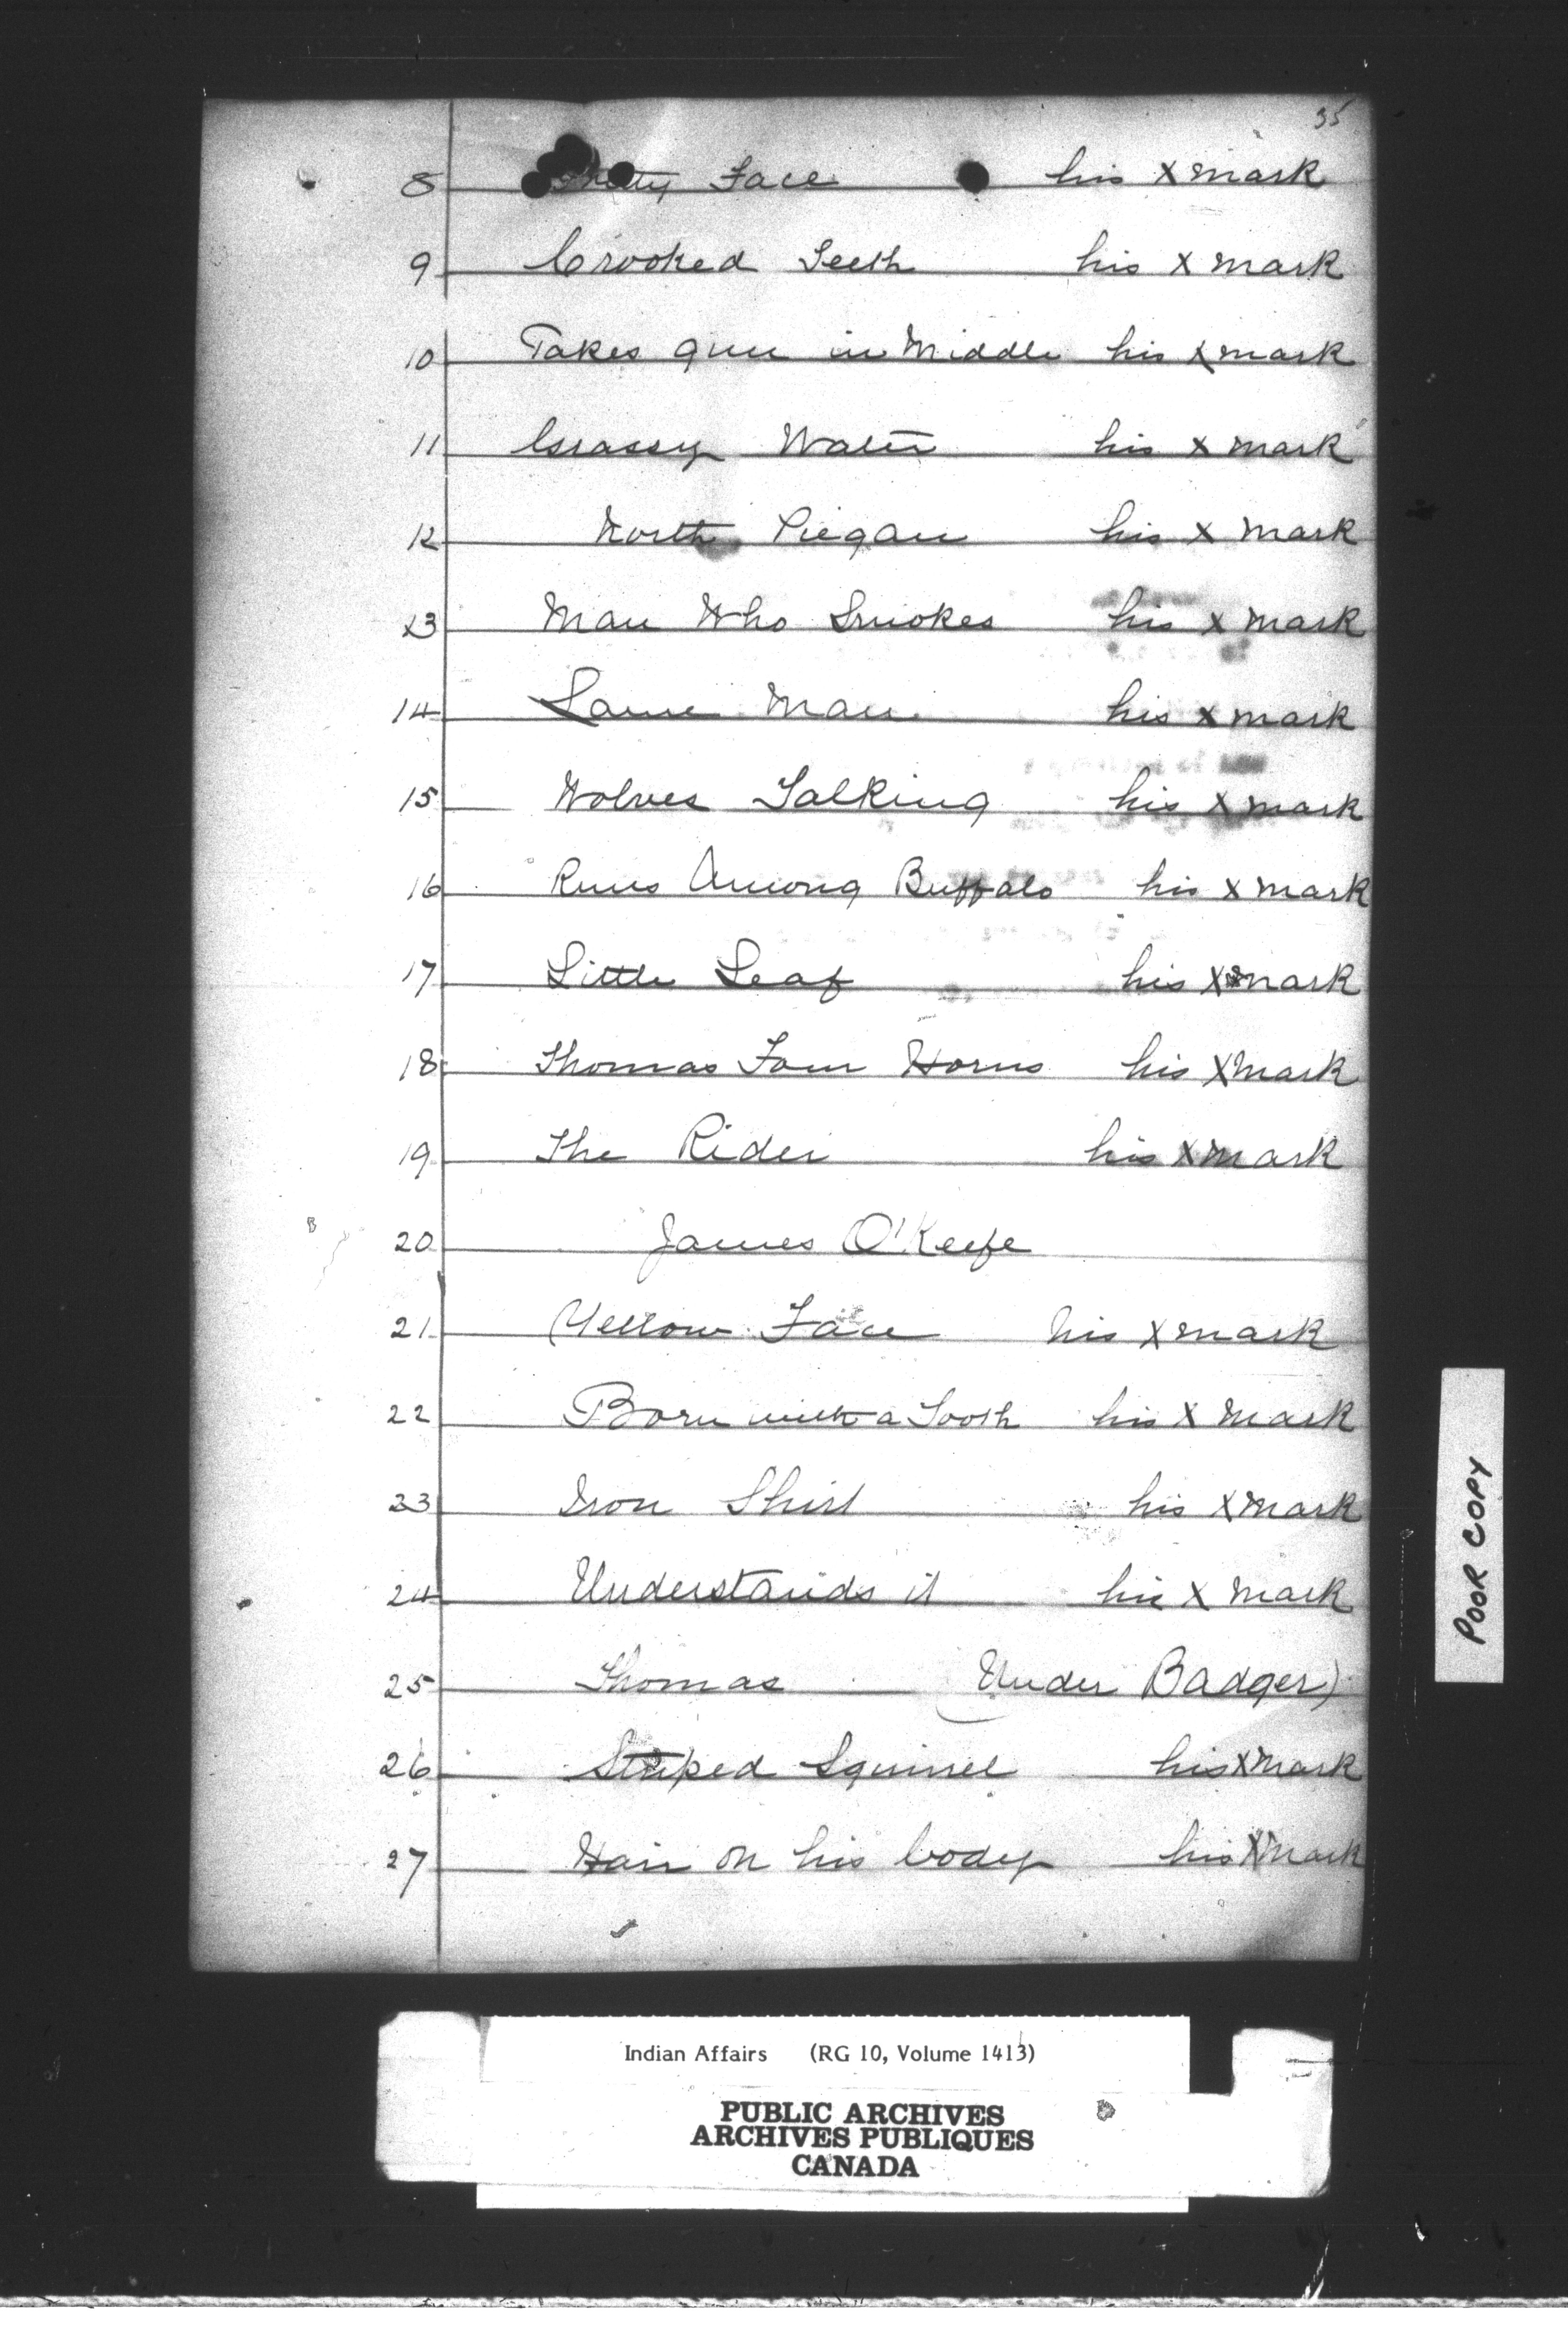 35
8 Pretty Face his X mark
9 Crooked Teeth his X mark
10 Takes gun in Middle his X mark
11 Grassy Water his X mark
12 North Piegan his X mark
13 Man Who Smokes his X mark
14 Lame Man his X mark
15 Wolves Talking his X mark
16 Runs Among Buffalo his X mark
17 Little Leaf his X mark
18 Thomas Four Horns his X mark
19 The Rider his X mark
20 James O'Keefe
21 Yellow Face his X mark
22 Born with a Tooth his X mark
23 Iron Shirt his X mark
24 Understands it his X mark
25 Thomas (Under Badger)
26 Striped Squirrel his X mark
27 Hair on his body his X mark
POOR COPY
Indian Affairs (RG 10, Volume 1413)
PUBLIC ARCHIVES
ARCHIVES PUBLIQUES
CANADA